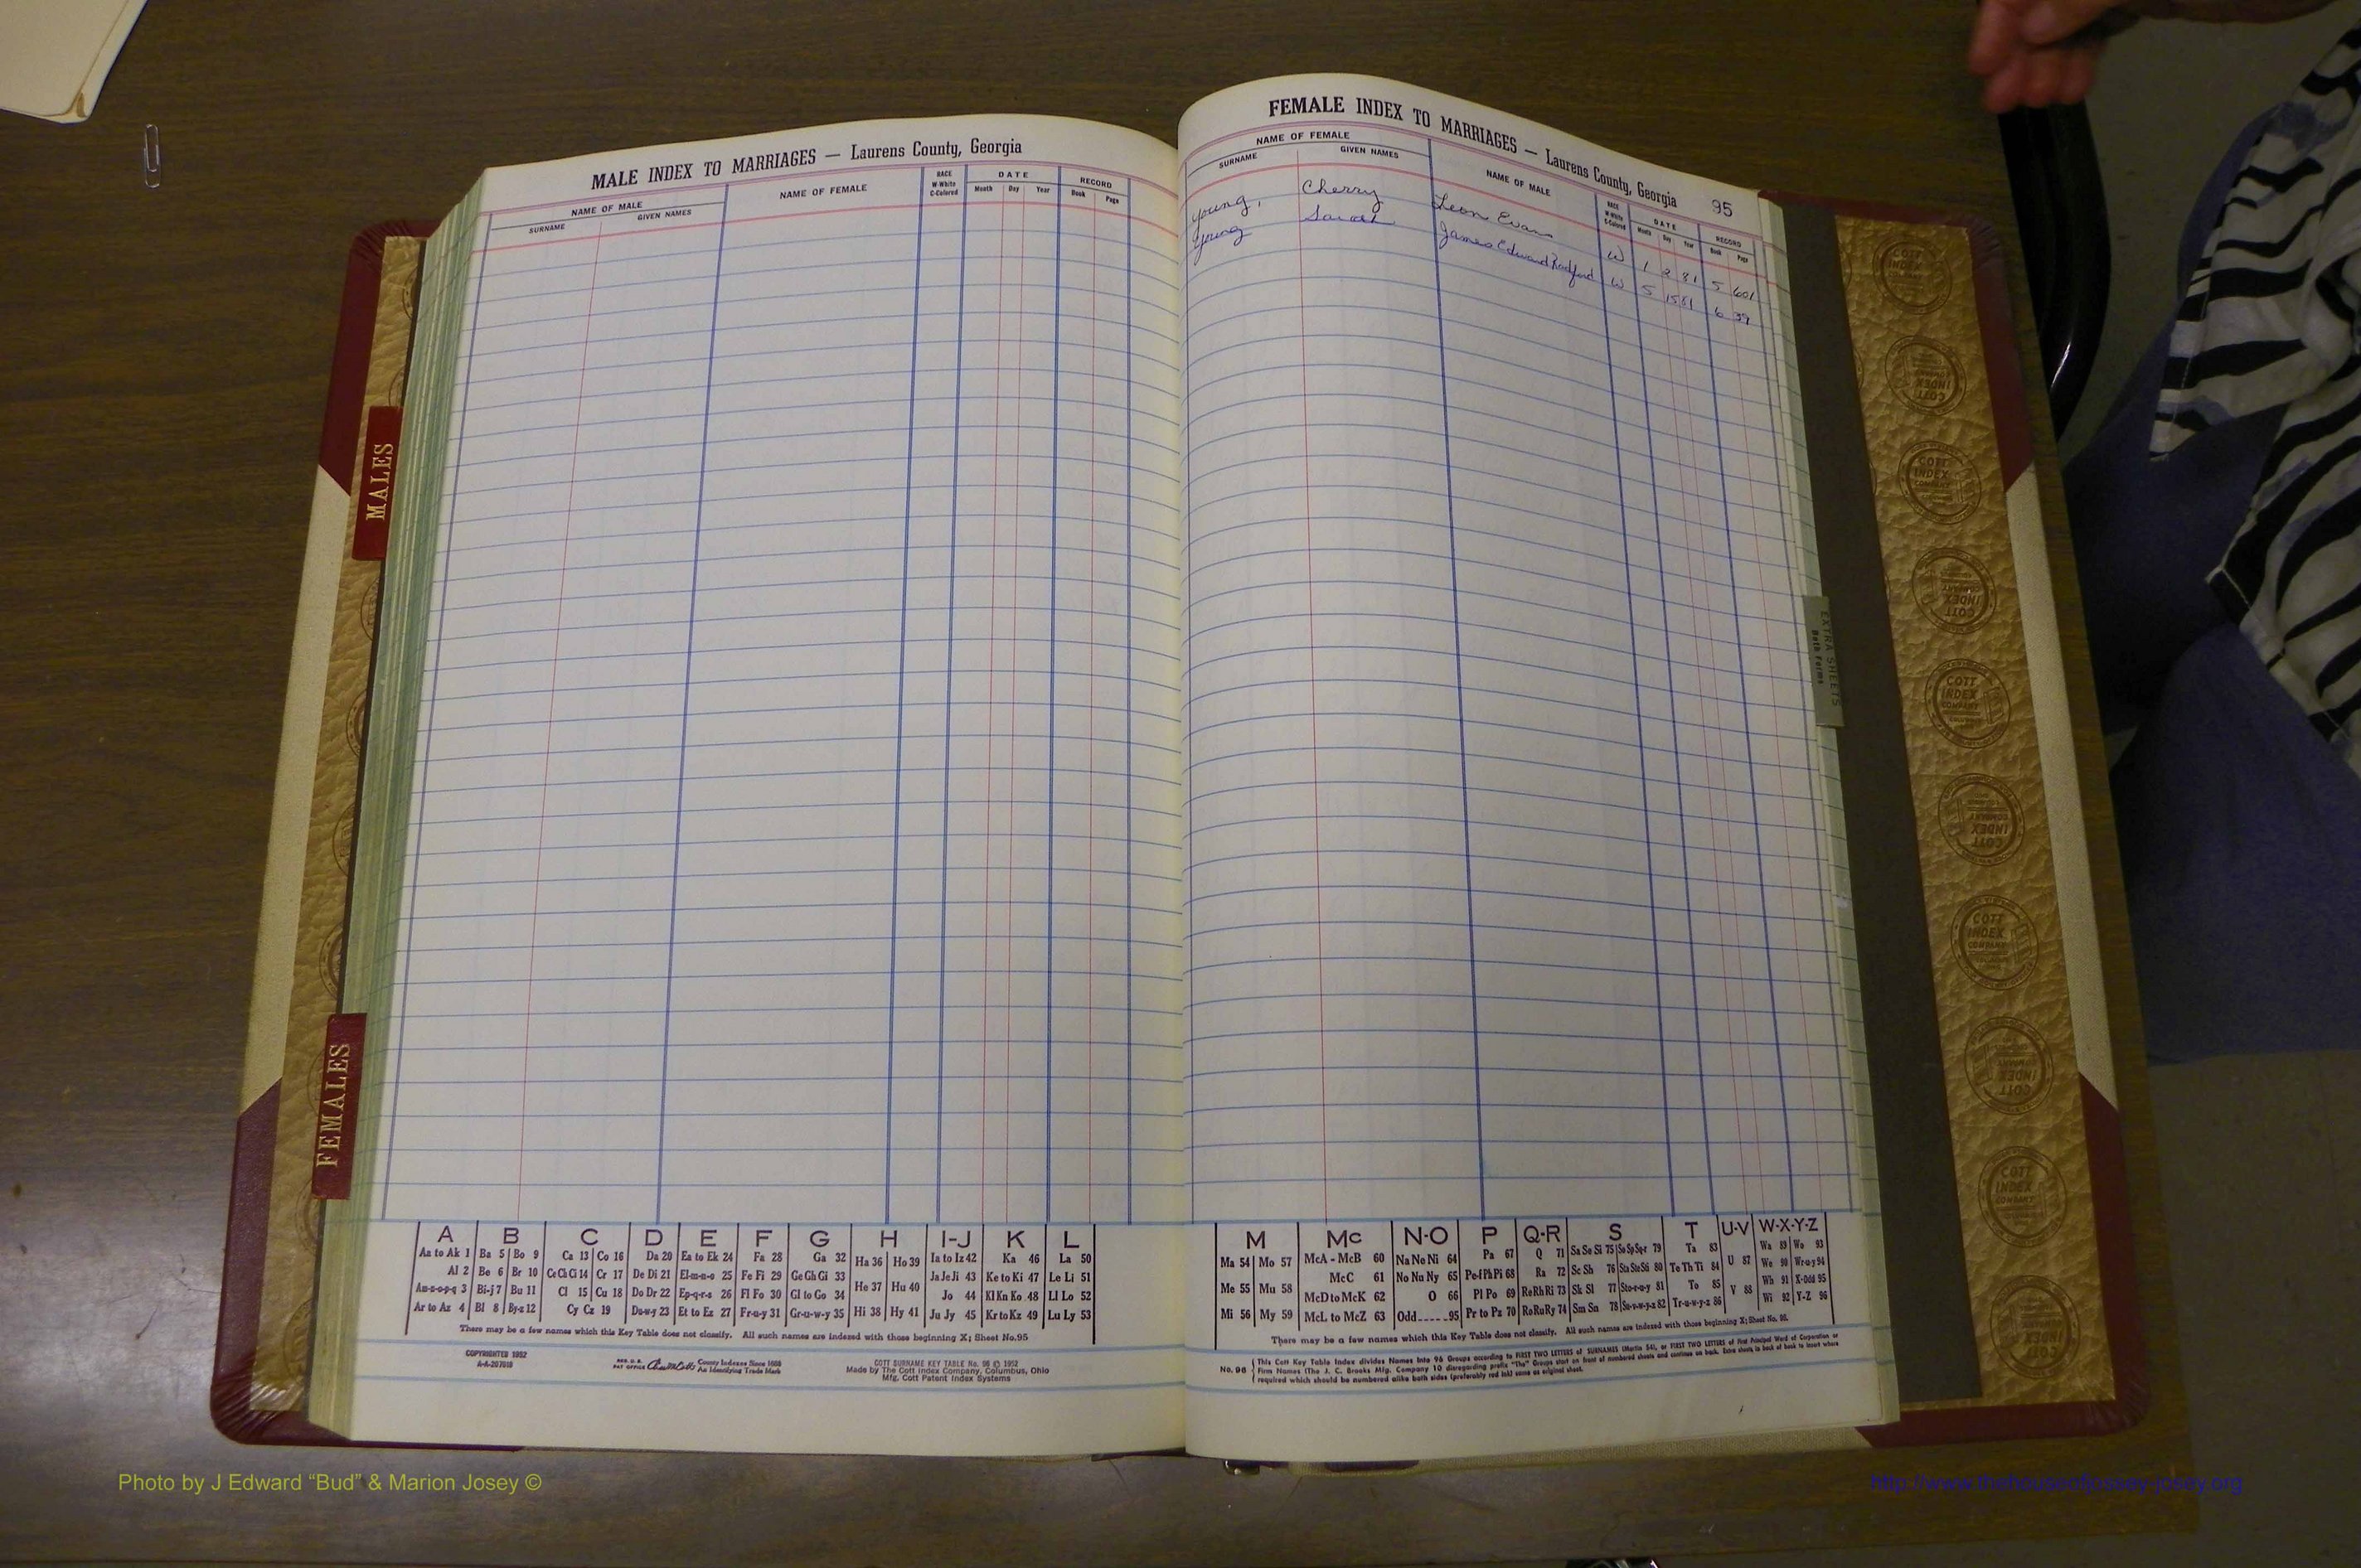 MALE INDEX TO MARRIAGES — Laurens County, Georgia
NAME OF MALE
SURNAME GIVEN NAMES
NAME OF FEMALE
RACE W-White C-Colored
DATE
Month Day Year
RECORD
Book Page
FEMALE INDEX TO MARRIAGES — Laurens County, Georgia 95
NAME OF FEMALE
SURNAME GIVEN NAMES
NAME OF MALE
RACE W-White C-Colored
DATE
Month Day Year
RECORD
Book Page
Young, Cherry Leon Evans W 1 2 81 5 601
Young Sarah James Edward Radford W 5 15 81 6 39
MALES
FEMALES
EXTRA SHEETS
Both Forms
COTT INDEX COMPANY
A B C D E F G H I-J K L
Aa to Ak 1 Ba 5 Bo 9 Ca 13 Co 16 Da 20 Ea to Ek 24 Fa 28 Ga 32 Ha 36 Ho 39 Ia to Iz 42 Ka 46 La 50
Al 2 Be 6 Br 10 Ce Ch Ci 14 Cr 17 De Di 21 El-m-n-o 25 Fe Fi 29 Ge Gh Gi 33 He 37 Hu 40 Ja Je Ji 43 Ke to Ki 47 Le Li 51
Am-n-o-p-q 3 Bi-j 7 Bu 11 Cl 15 Cu 18 Do Dr 22 Ep-q-r-s 26 Fl Fo 30 Gl to Go 34 Jo 44 Kl Kn Ko 48 Ll Lo 52
Ar to Az 4 Bl 8 By-z 12 Cy Cz 19 Du-w-y 23 Et to Ez 27 Fr-u-y 31 Gr-u-w-y 35 Hi 38 Hy 41 Ju Jy 45 Kr to Kz 49 Lu Ly 53
There may be a few names which this Key Table does not classify. All such names are indexed with those beginning X; Sheet No. 95
COPYRIGHTED 1952
REG. U.S. PAT OFFICE County Indexes Since 1888
An Identifying Trade Mark
COTT SURNAME KEY TABLE No. 96 © 1952
Made by The Cott Index Company, Columbus, Ohio
Mfg. Cott Patent Index Systems
M Mc N-O P Q-R S T U-V W-X-Y-Z
Ma 54 Mo 57 McA - McB 60 Na Ne Ni 64 Pa 67 Q 71 Sa Se Si 75 So Sp Sq-r 79 Ta 83 U 87 Wa 89 Wo 93
Me 55 Mu 58 McC 61 No Nu Ny 65 Pe-f Ph Pi 68 Ra 72 Sc Sh 76 Sta Ste Sti 80 Te Th Ti 84 We 90 Wr-u-y 94
McD to McK 62 O 66 Pl Po 69 Re Rh Ri 73 Sk Sl 77 Sto-r-u-y 81 To 85 V 88 Wh 91 X-Odd 95
Mi 56 My 59 McL to McZ 63 Odd 95 Pr to Pz 70 Ro Ru Ry 74 Sm Sn 78 Su-v-w-y-z 82 Tr-u-w-y-z 86 Wi 92 Y-Z 96
There may be a few names which this Key Table does not classify. All such names are indexed with those beginning X; Sheet No. 95.
No. 96
This Cott Key Table Index divides Names into 96 Groups according to FIRST TWO LETTERS of SURNAMES (Martin 54), or FIRST TWO LETTERS of First Principal Word of Corporation or
Firm Names (The J. C. Brooks Mfg. Company 10 disregarding prefix "The") Groups start on front of numbered sheets and continue on back. Extra sheets in back of book to insert where
required which should be numbered alike both sides (preferably red ink) same as original sheet.
Photo by J Edward “Bud” & Marion Josey ©
http://www.thehouseofjossey-josey.org